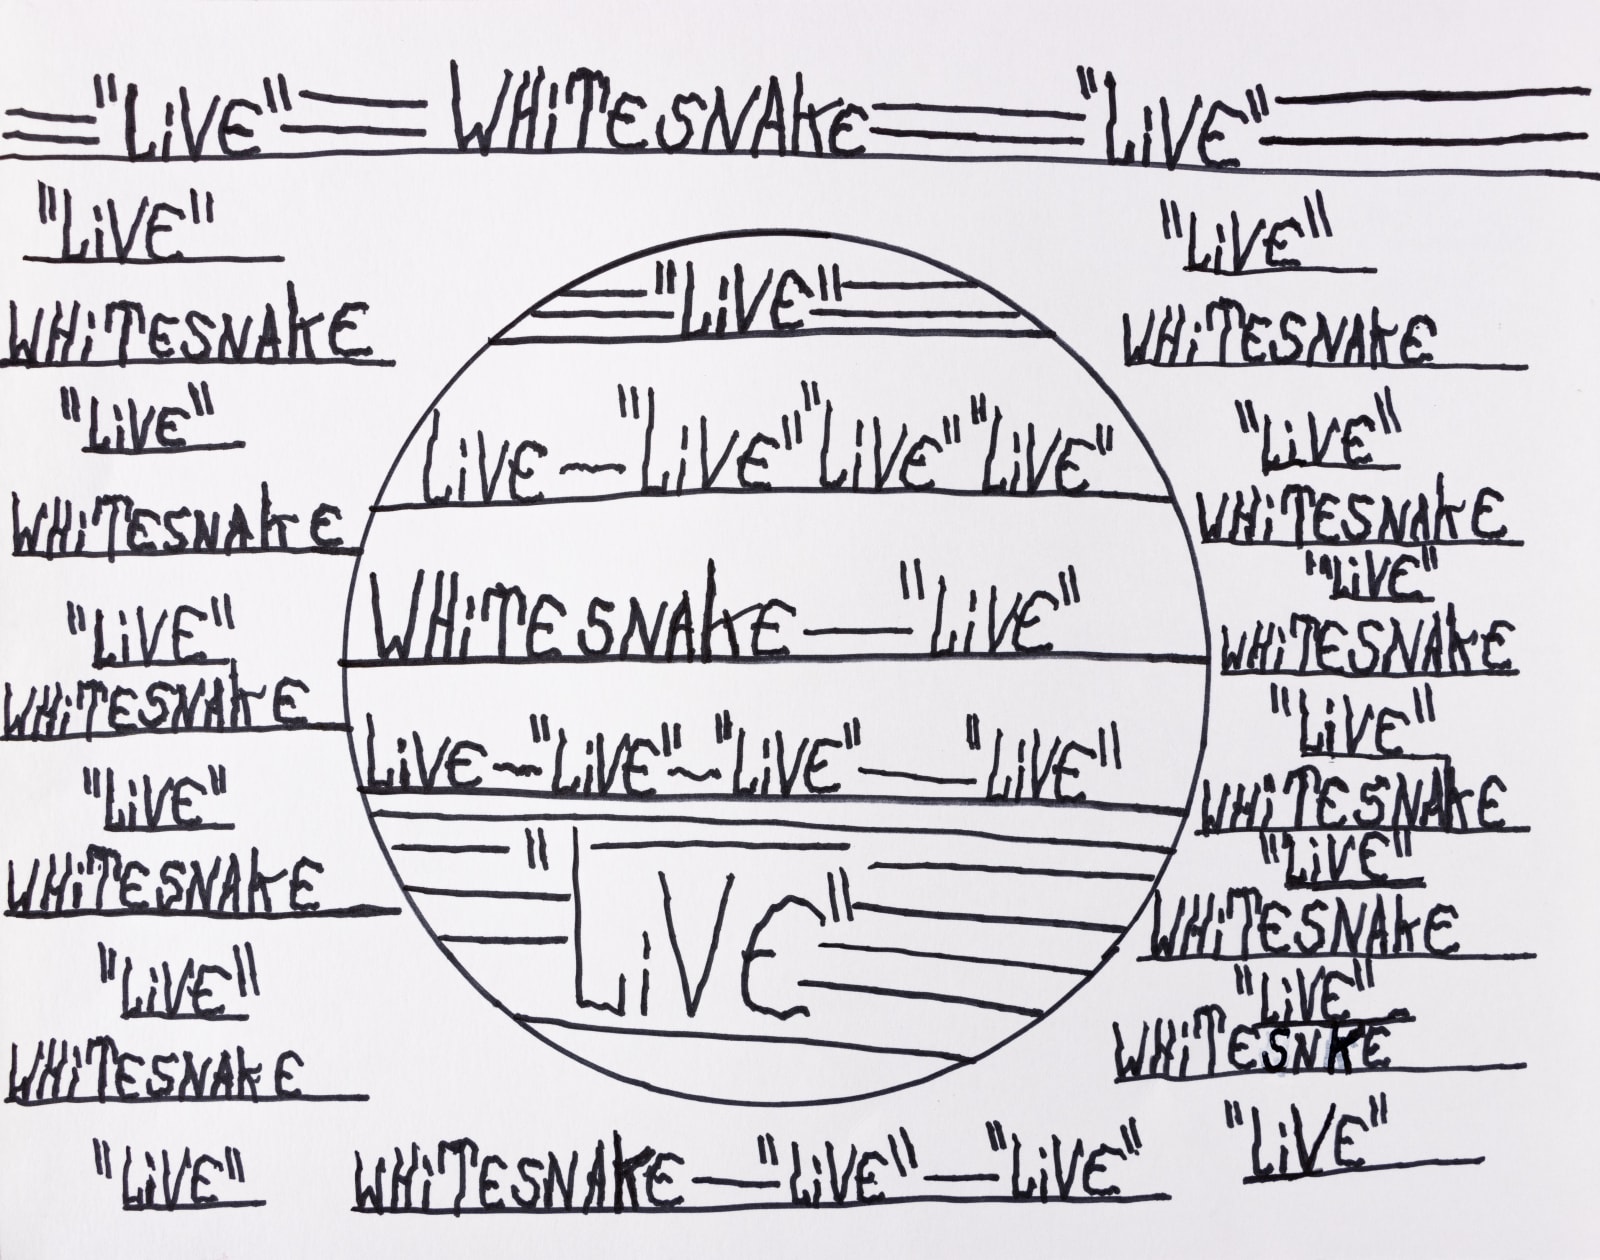 "LiVE" WHiTESNAkE "LiVE"
"LiVE"
WHiTESNAkE
"LiVE"
WHiTESNAkE
"LiVE"
WHiTESNAkE
"LiVE"
WHiTESNAkE
"LiVE"
WHiTESNAkE
"LiVE"
"LiVE"
LiVE ~ "LiVE" "LiVE" "LiVE"
WHiTESNAkE — "LiVE"
LiVE ~ "LiVE" ~ "LiVE" — "LiVE"
"LiVE"
WHiTESNAKE — "LiVE" — "LiVE"
"LiVE"
WHiTESNAkE
"LiVE"
WHiTESNAkE
"LiVE"
WHiTESNAkE
"LiVE"
WHiTESNAkE
"LiVE"
WHiTESNAkE
"LiVE"
WHiTESNKE
"LiVE"